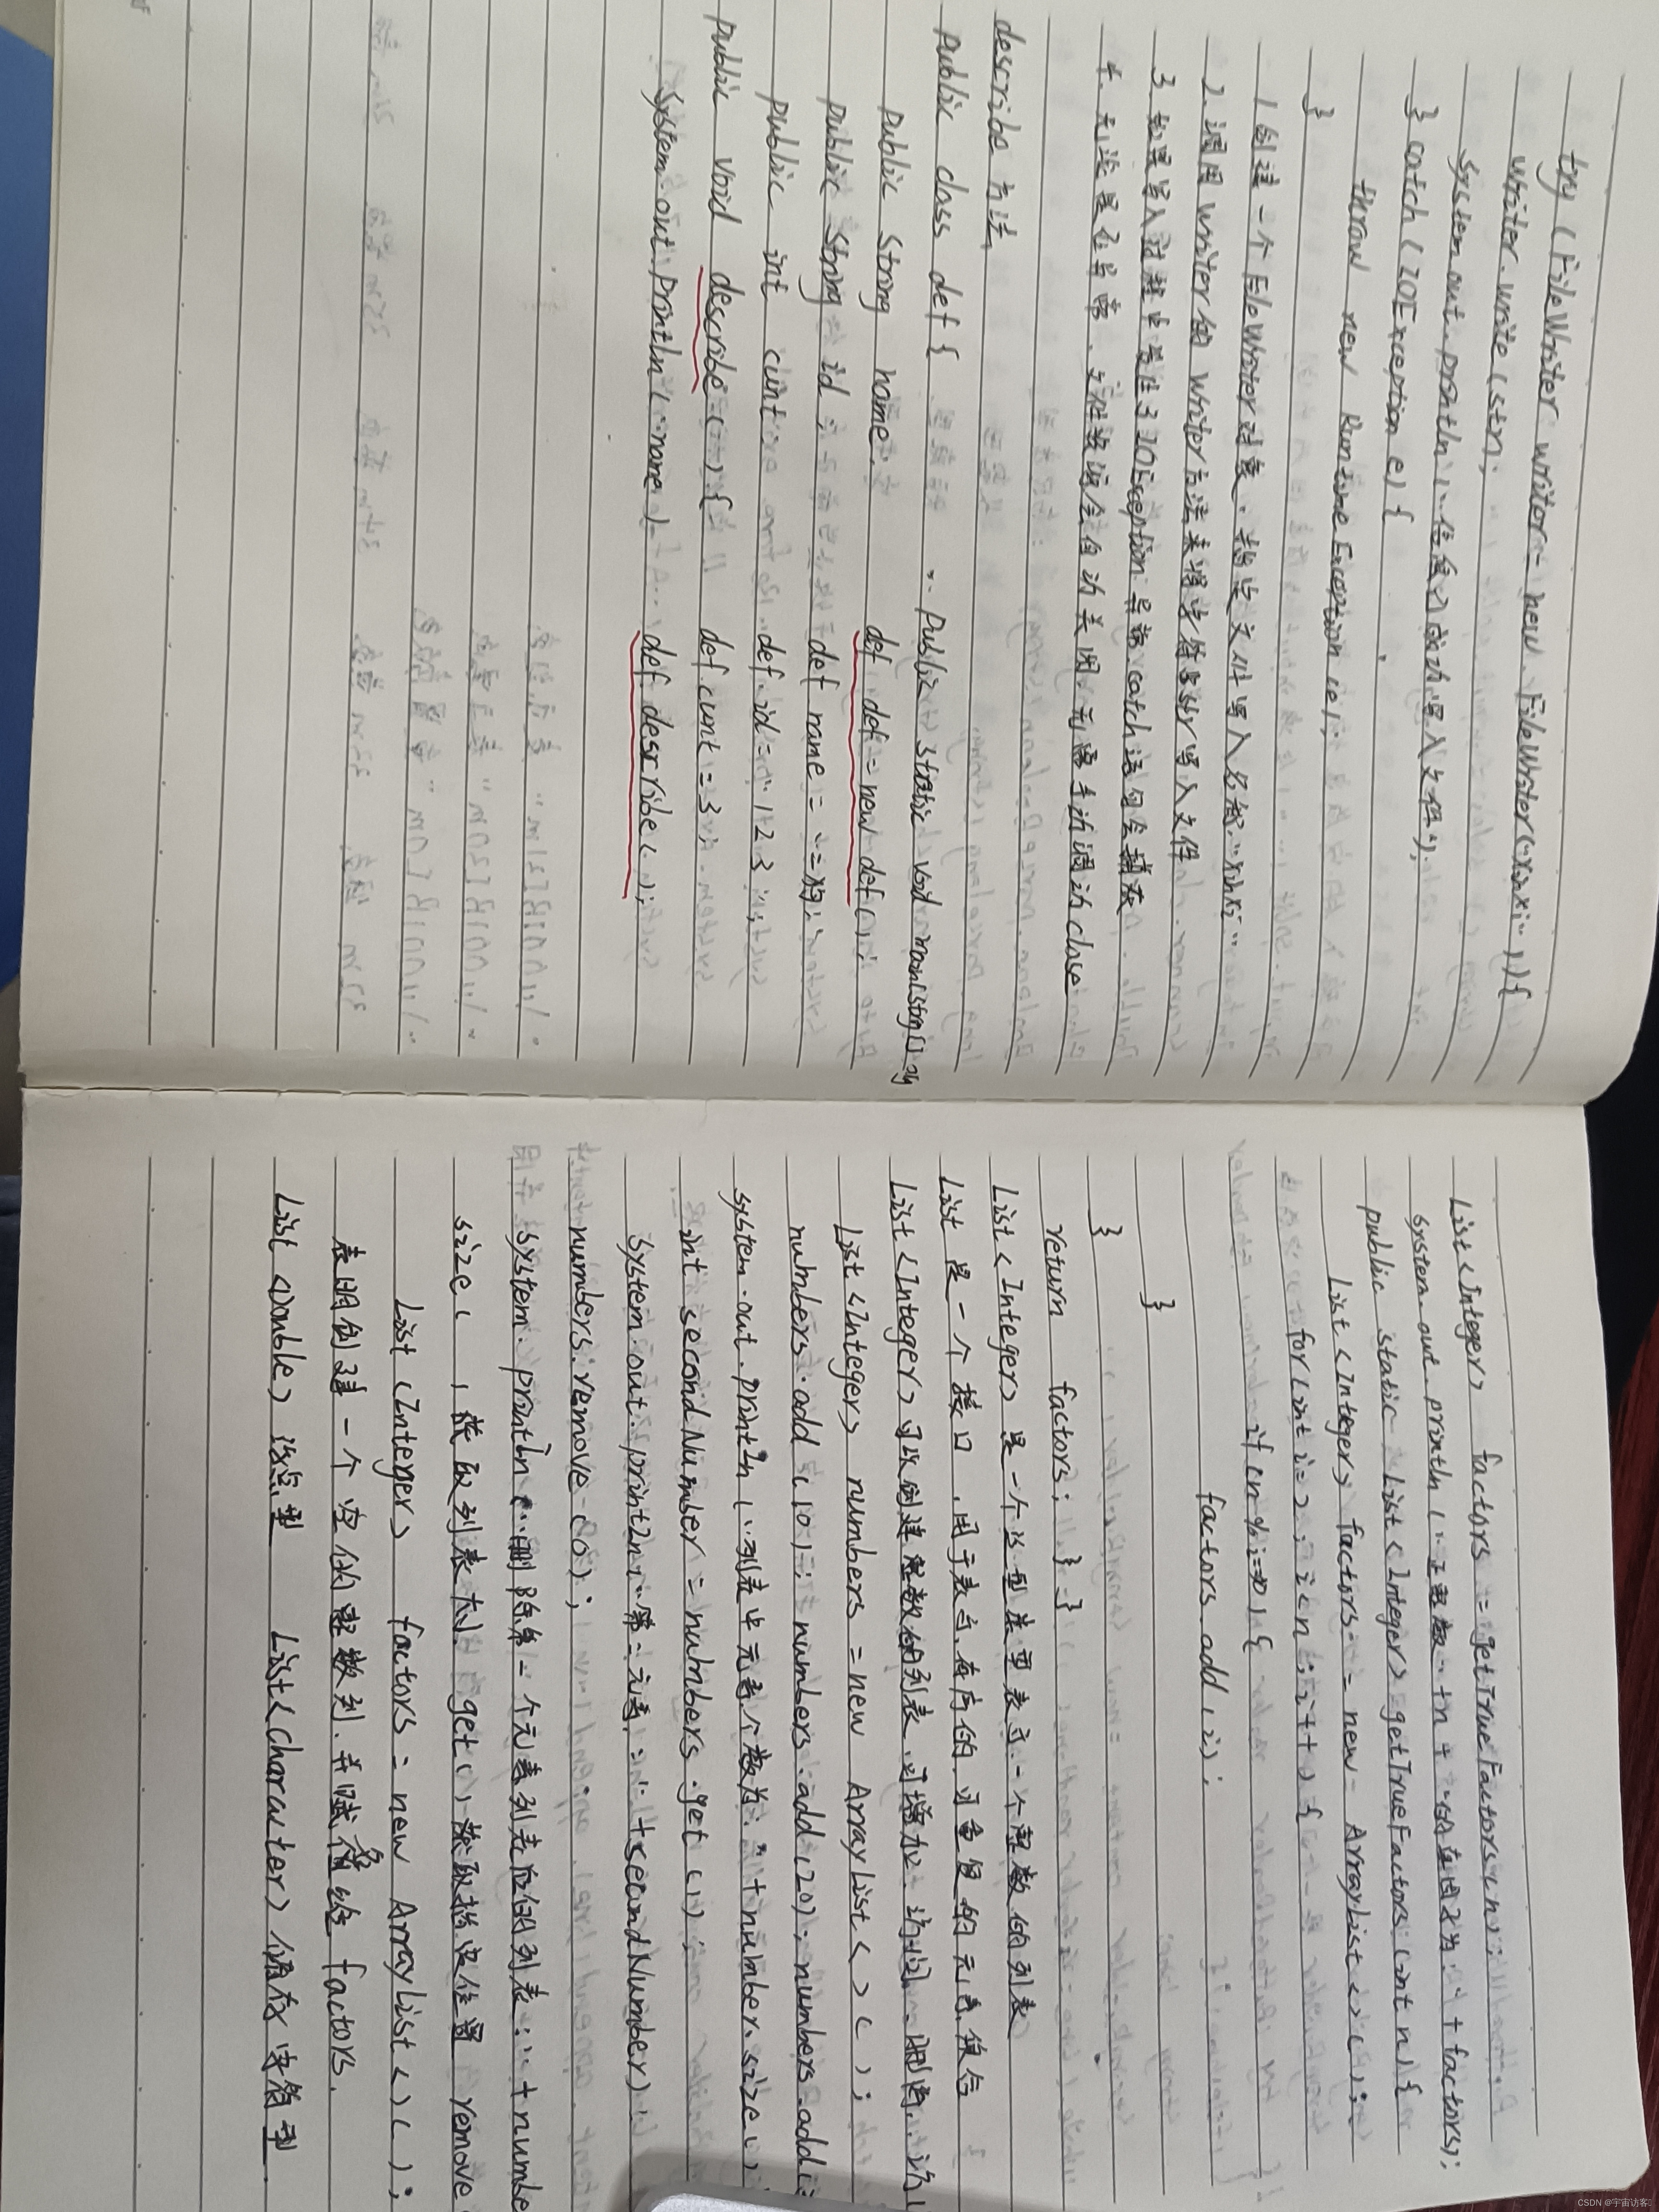 try (FileWriter writer = new FileWriter("xinxi")){
writer.write(str);
System.out.println("信息已成功写入文件");
} catch (IOException e) {
throw new RuntimeException(e);
}
1 创建一个FileWriter对象，指定文件写入名称"xinxi"
2.调用writer的writer方法来将字符串str写入文件
3 如果写入过程中发生了IOException异常.catch语句会捕获
4. 无论是否异常，文件资源会自动关闭无需手动调动close
describe方法
public class def { public static void main(String[]
public String name; def def = new def();
public String id; def name =
public int cunt def.id = "123";
public void describe () { def cunt = 3;
System.out.println(name) def describe();
List<Integer> factors = getTrueFactors(n);
System.out.println("正整数"+n+"的 因子为:"+factors);
public static List<Integer> getTrueFactors(int n){
List<Integer> factors = new ArrayList<>();
for(int i=2; i<n; i++) {
if (n%i==0) {
factors.add(i);
}
}
return factors; }
List<Integer>是一个 类型表示一个整数的列表
List 是一个接口，用于表示有序的，可重复的元素集合
List<Integer>可以创建整数的列表，可增加、访问、删除
List<Integer> numbers = new ArrayList<>();
numbers.add(10); numbers.add(20); numbers.add(
System.out.println("列表中元素个数为:"+number.size();
int secondNumber = numbers.get(1);
System.out.println("第二元素:"+secondNumber);
numbers.remove(0);
System.println("删除第一个元素列表后的列表:"+numbe
size() 获取列表大小 get() 获取指定位置 remove
List<Integer> factors = new ArrayList<>();
表明创建一个空的整数列.并赋值给 factors.
List<Double> 浮点型 List<Character> 储存字符型.
CSDN @宇宙访客